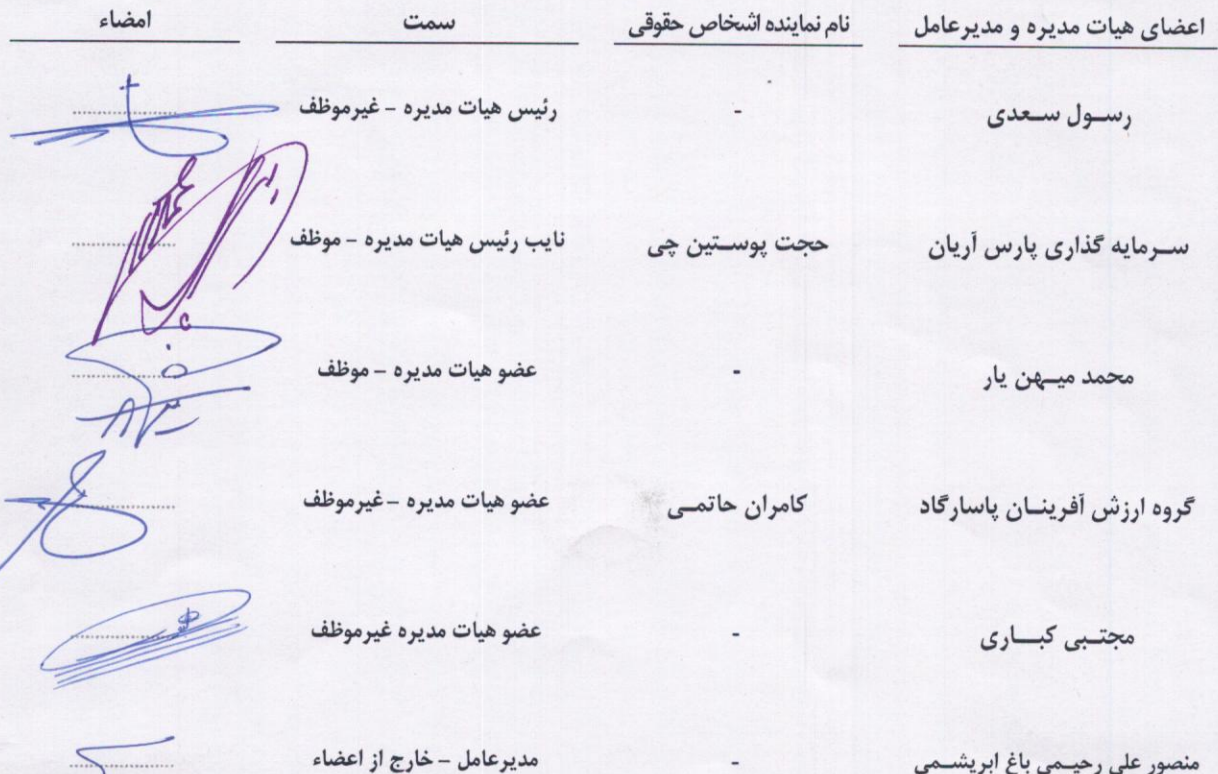 اعضای هیات مدیره و مدیرعامل نام نماینده اشخاص حقوقی سمت امضاء
رسول سعدی - رئیس هیات مدیره - غیرموظف
سرمایه گذاری پارس آریان حجت پوستین چی نایب رئیس هیات مدیره - موظف
محمد میهن یار - عضو هیات مدیره - موظف
گروه ارزش آفرینان پاسارگاد کامران حاتمی عضو هیات مدیره -غیرموظف
مجتبی کباری - عضو هیات مدیره غیرموظف
منصور علی رحیمی باغ ابریشمی - مدیرعامل - خارج از اعضاء